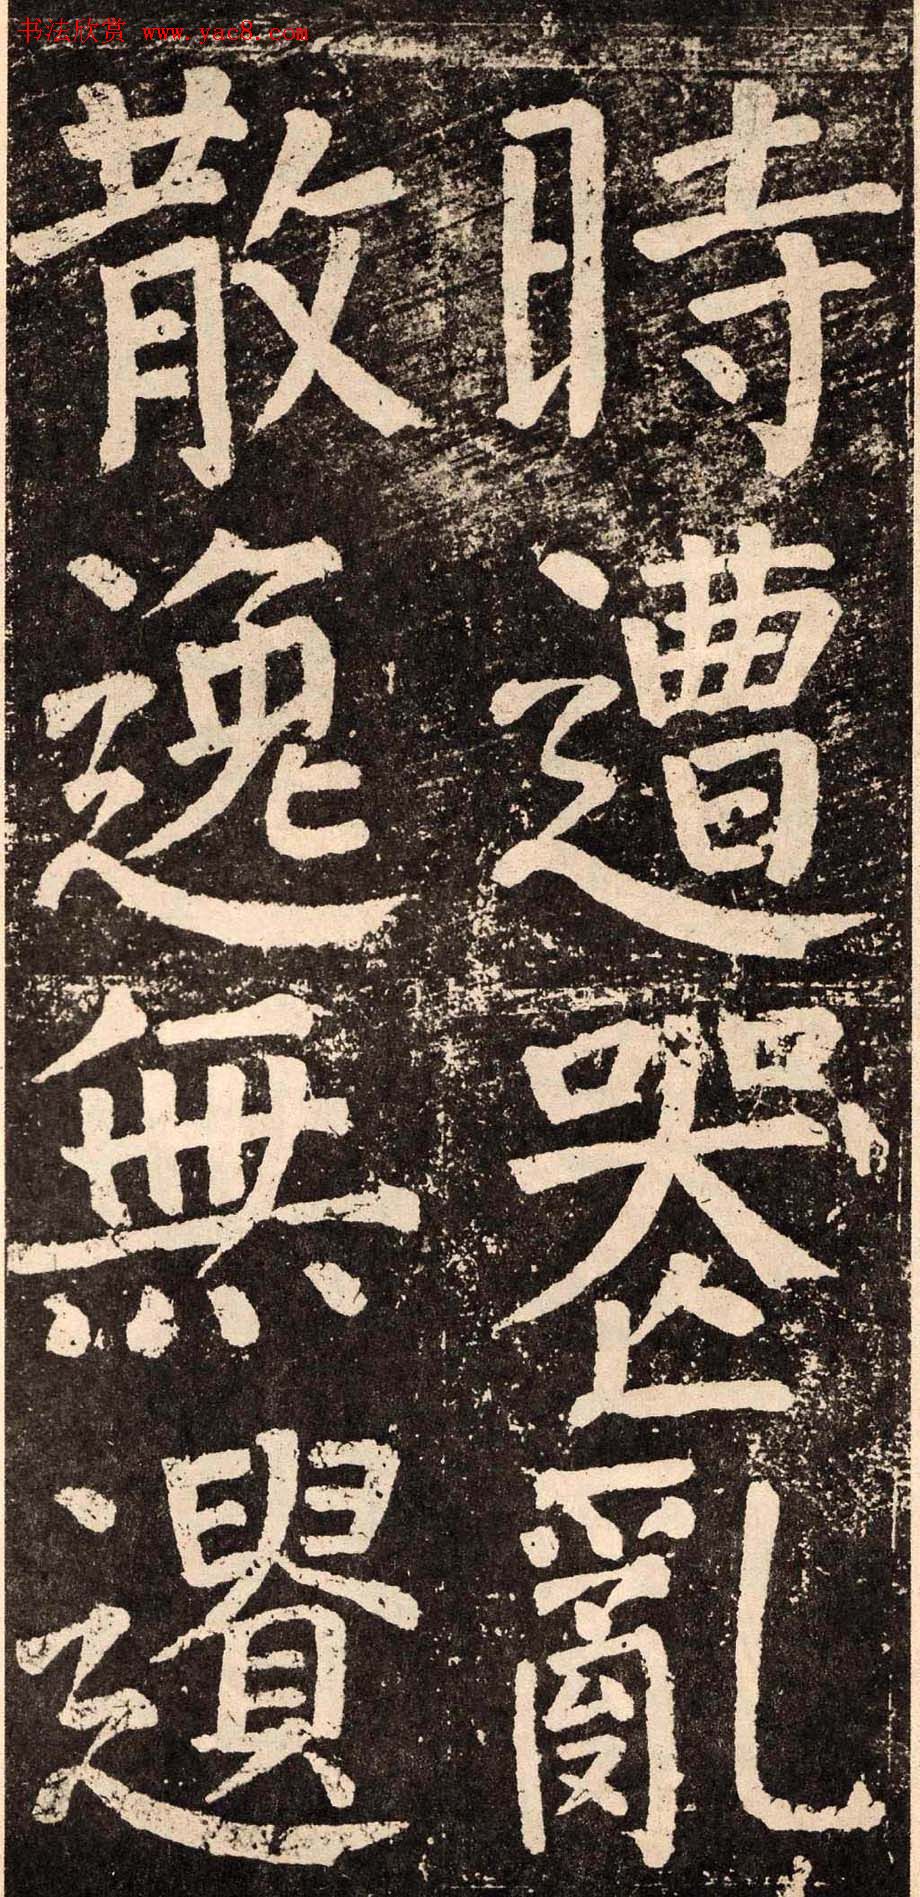 书法欣赏 www.yac8.com
時遭喪亂
散逸無遺